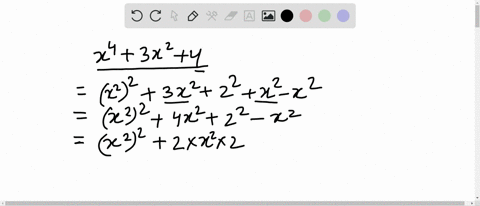 x⁴ + 3x² + 4
= (x²)² + 3x² + 2² + x² - x²
= (x²)² + 4x² + 2² - x²
= (x²)² + 2 × x² × 2